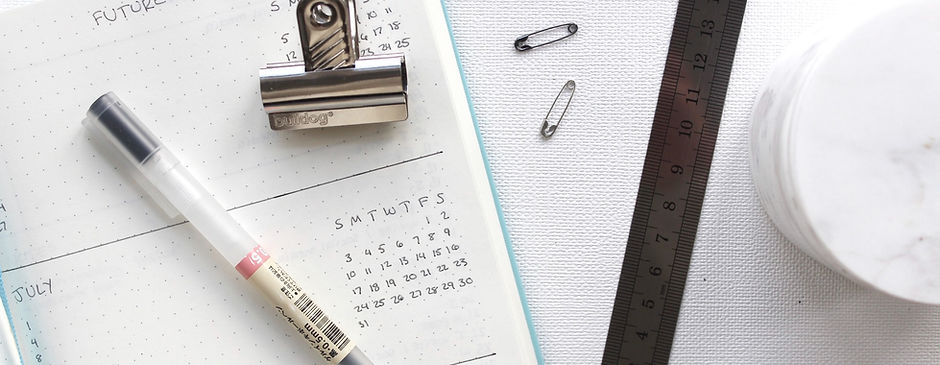 FUTURE
10 11
18
23 24 25
bulldog®
JULY
1
4
8
S M T W T F S
1 2
3 4 5 6 7 8 9
10 11 12 13 14 15 16
17 18 19 20 21 22 23
24 25 26 27 28 29 30
31
0.5mm
13
12
11
10
9
8
7
6
5
4